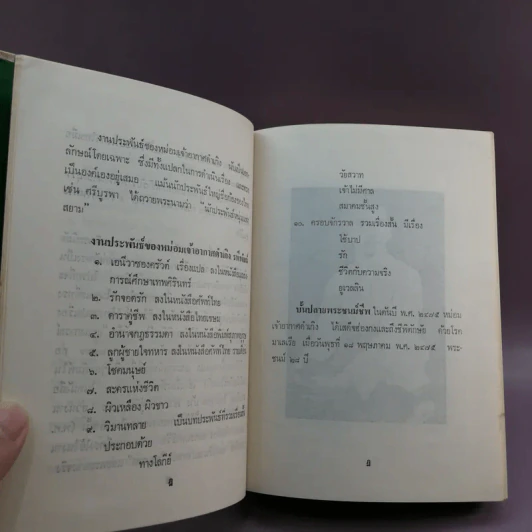 งานประพันธ์ของหม่อมเจ้าอากาศดำเกิง
ลักษณ์โดยเฉพาะ ซึ่งมีทั้งแปลกในการดำเนินเรื่อง
เป็นองค์เองอยู่เสมอ แม้นนักประพันธ์ใหญ่
เช่น ศรีบูรพา ได้ถวายพระนามว่า "นักประพันธ์
สยาม"
งานประพันธ์ของหม่อมเจ้าอากาศดำเกิง รพีพัฒน์
๑. เอนีวาของครัวต์ เรื่องแปล ลงในหนังสือ
การณ์ศึกษาเทพศิรินทร์
๒. รักจอดรัก ลงในหนังสือศัพท์ไทย
๓. ดาราคู่ชีพ ลงในหนังสือไทยเขษม
๔. อำนาจกฎธรรมดา ลงในหนังสือ
๕. ลูกผู้ชายใจทหาร ลงในหนังสือศัพท์ไทย
๖. โชคมนุษย์
๗. ละครแห่งชีวิต
๘. ผิวเหลือง ผิวขาว
๙. วิมานทลาย เป็นบทประพันธ์
ประกอบด้วย
ทางโลกีย์
วัยสวาท
เจ้าไม่มีศาล
สมาคมชั้นสูง
๑๐. ครอบจักรวาล รวมเรื่องสั้น มีเรื่อง
ใช้บาป
รัก
ชีวิตกับความจริง
บั้นปลายพระชนม์ชีพ ในต้นปี พ.ศ. ๒๔๗๕ หม่อม
เจ้าอากาศดำเกิง ได้เสด็จฮ่องกงและถึงชีพิตักษัย ด้วยโรค
มาเลเรีย เมื่อวันพุธที่ ๑๘ พฤษภาคม พ.ศ. ๒๔๗๕ พระ
ชนม์ ๒๘ ปี